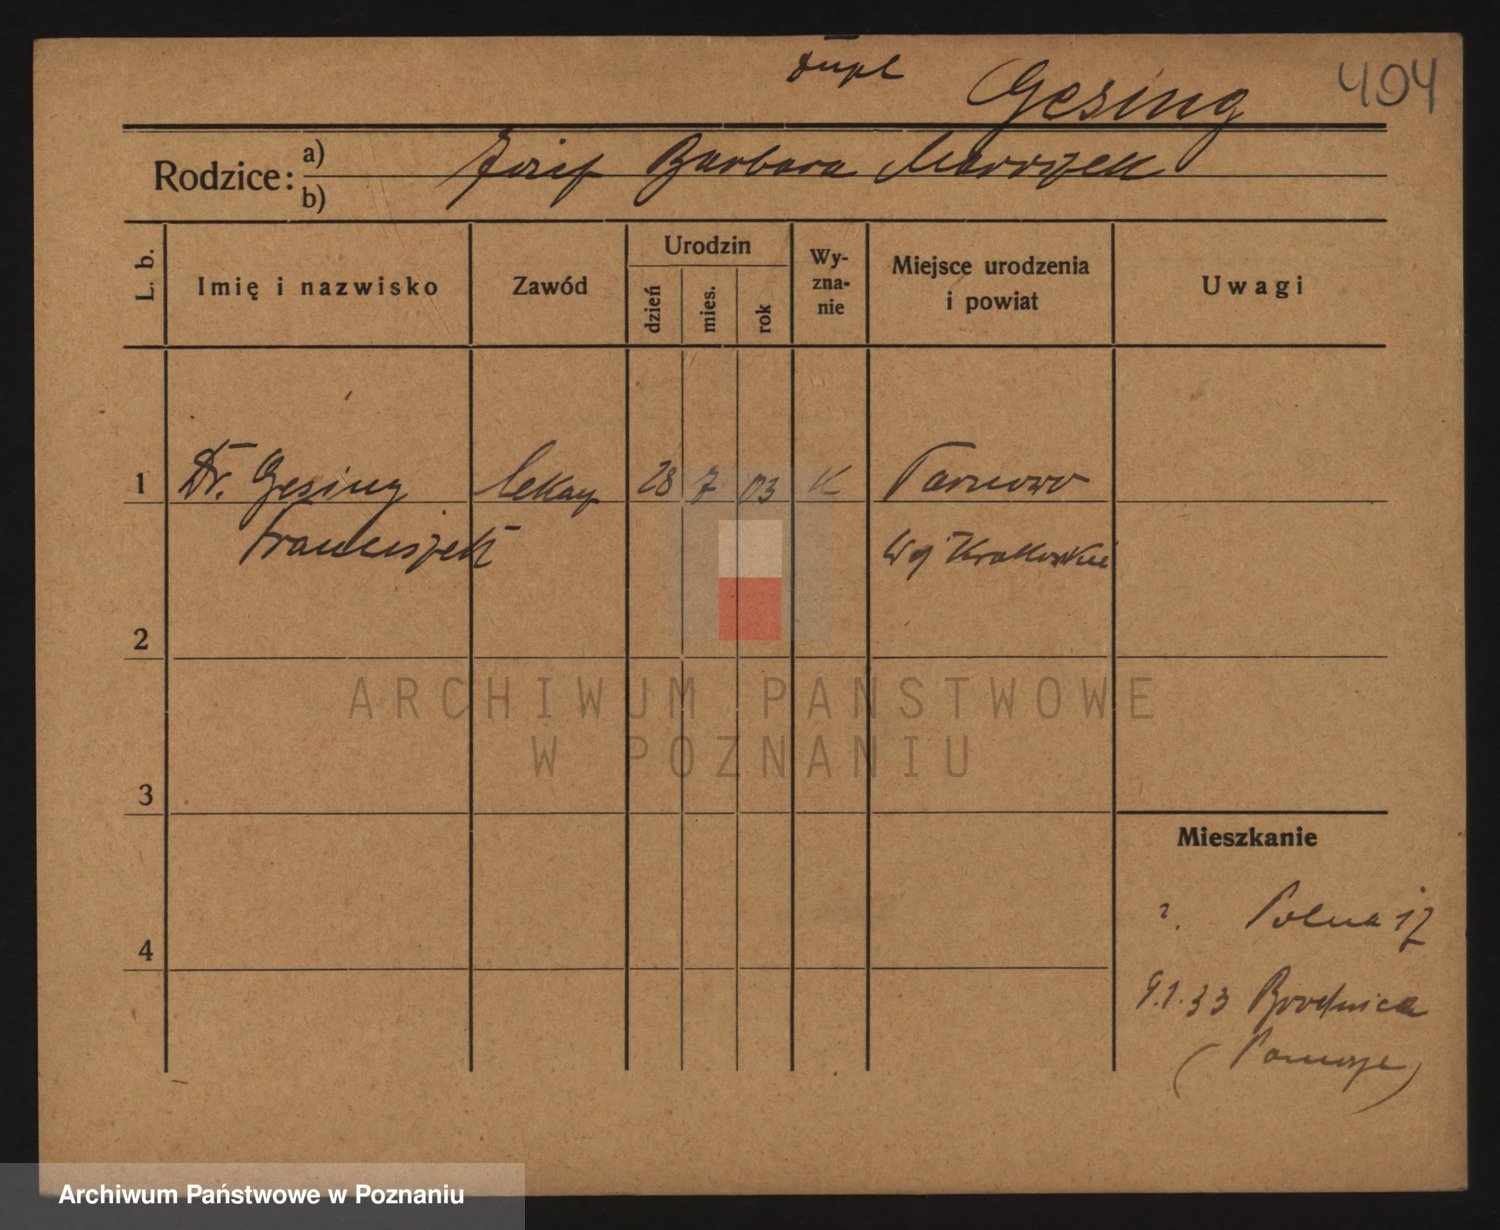 dupl Gesing 494
Rodzice: a) b) Józef Barbara
L. b.
Imię i nazwisko
Zawód
Urodzin
dzień
mies.
rok
Wy-
zna-
nie
Miejsce urodzenia
i powiat
Uwagi
1 Dr. Gesing lekarz 28 7 03 K
Franciszek Woj Krakowskie
2
3
4
Mieszkanie
?. Polna 17
9.1.33 Brodnica
(Pomorze)
ARCHIWUM PAŃSTWOWE
W POZNANIU
Archiwum Państwowe w Poznaniu